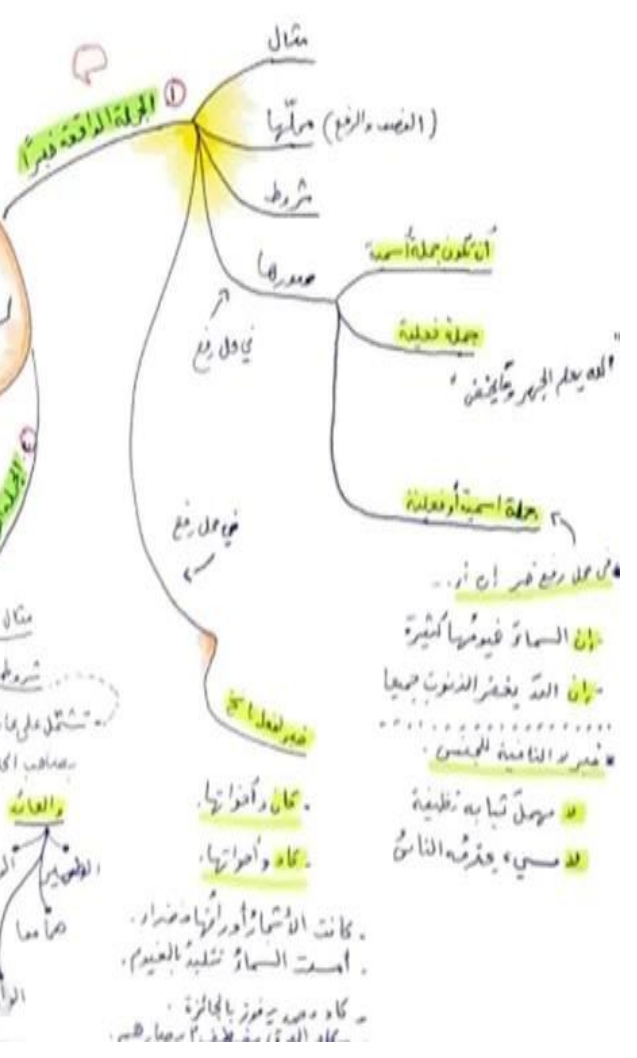 مثال
① الجملة الواقعة خبراً
محلّها (النصب والرفع)
شروط
صورها
في محل رفع
أن تكون جملة أسمية
جملة فعلية
"الله يعلم الجهر وما يخفى"
جملة اسمية أو فعلية
في محل رفع
* في محل رفع خبر إن أو..
- إن السماءَ غيومُها كثيرة
- إن اللهَ يغفر الذنوب جميعا
* خبر لا النافية للجنس.
لا مهملَ ثيابه نظيفة
لا مسيءَ يحترمُه الناسُ
خبر لفعل ناسخ
- كان وأخواتها.
- كاد وأخواتها.
- كانت الأشجارُ أوراقُها خضراء.
- أمست السماءُ تتلبدُ بالغيوم.
- كاد يفوز بالجائزة.
الجملة
مثال
شروط
- تشتمل على
بصاحب
والعائد
الضمير
هما معا